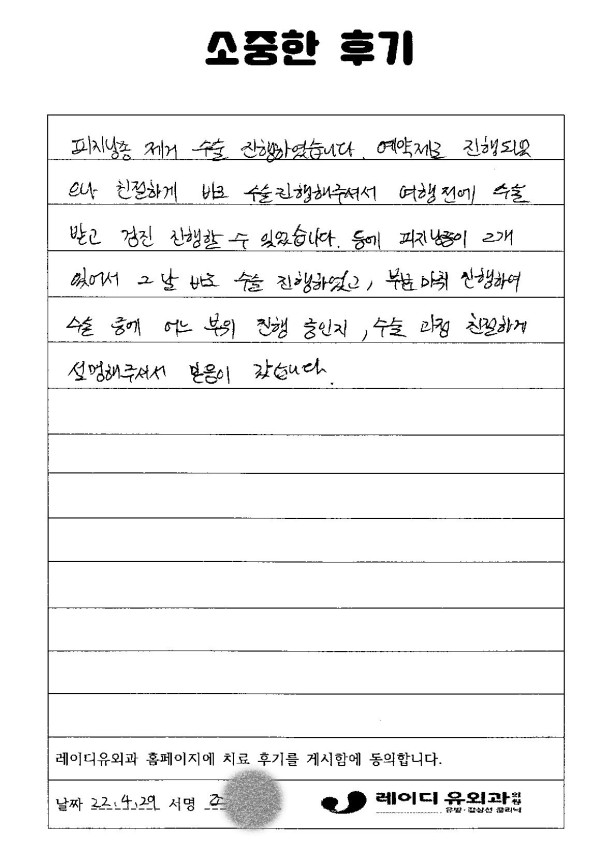 소중한 후기
피지낭종 제거 수술 진행하였습니다. 예약제로 진행되었
으나 친절하게 바로 수술진행해주셔서 여행전에 수술
받고 검진 진행할 수 있었습니다. 등에 피지낭종이 2개
있어서 그 날 바로 수술 진행하였고, 부분 마취 진행하여
수술 중에 어느 부위 진행 중인지, 수술 과정 친절하게
설명해주셔서 믿음이 갔습니다.
레이디유외과 홈페이지에 치료 후기를 게시함에 동의합니다.
날짜 22.4.29 서명 조
레이디 유외과의원
유방·갑상선 클리닉